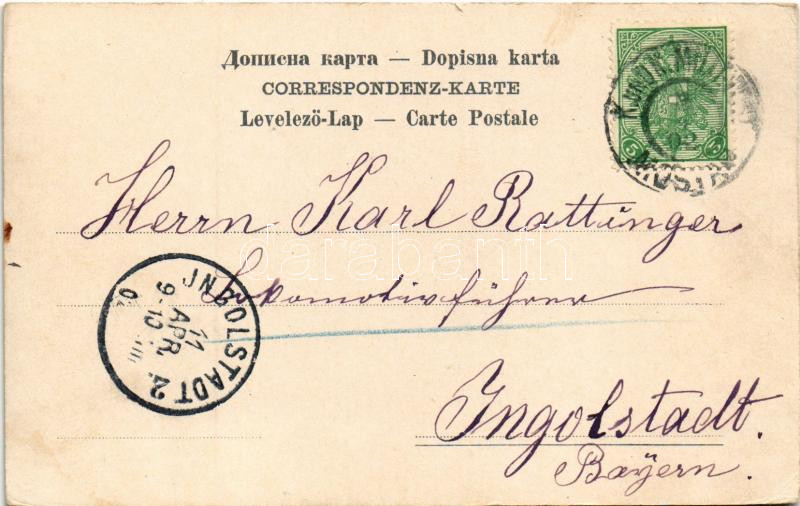 Дописна карта — Dopisna karta
CORRESPONDENZ-KARTE
Levelezö-Lap — Carte Postale
5 5
02
MOSTAR
Herrn Karl Rattinger
Lokomotivführer
Ingolstadt.
Bayern.
INGOLSTADT 2.
11
APR.
9-10
02
darabanth